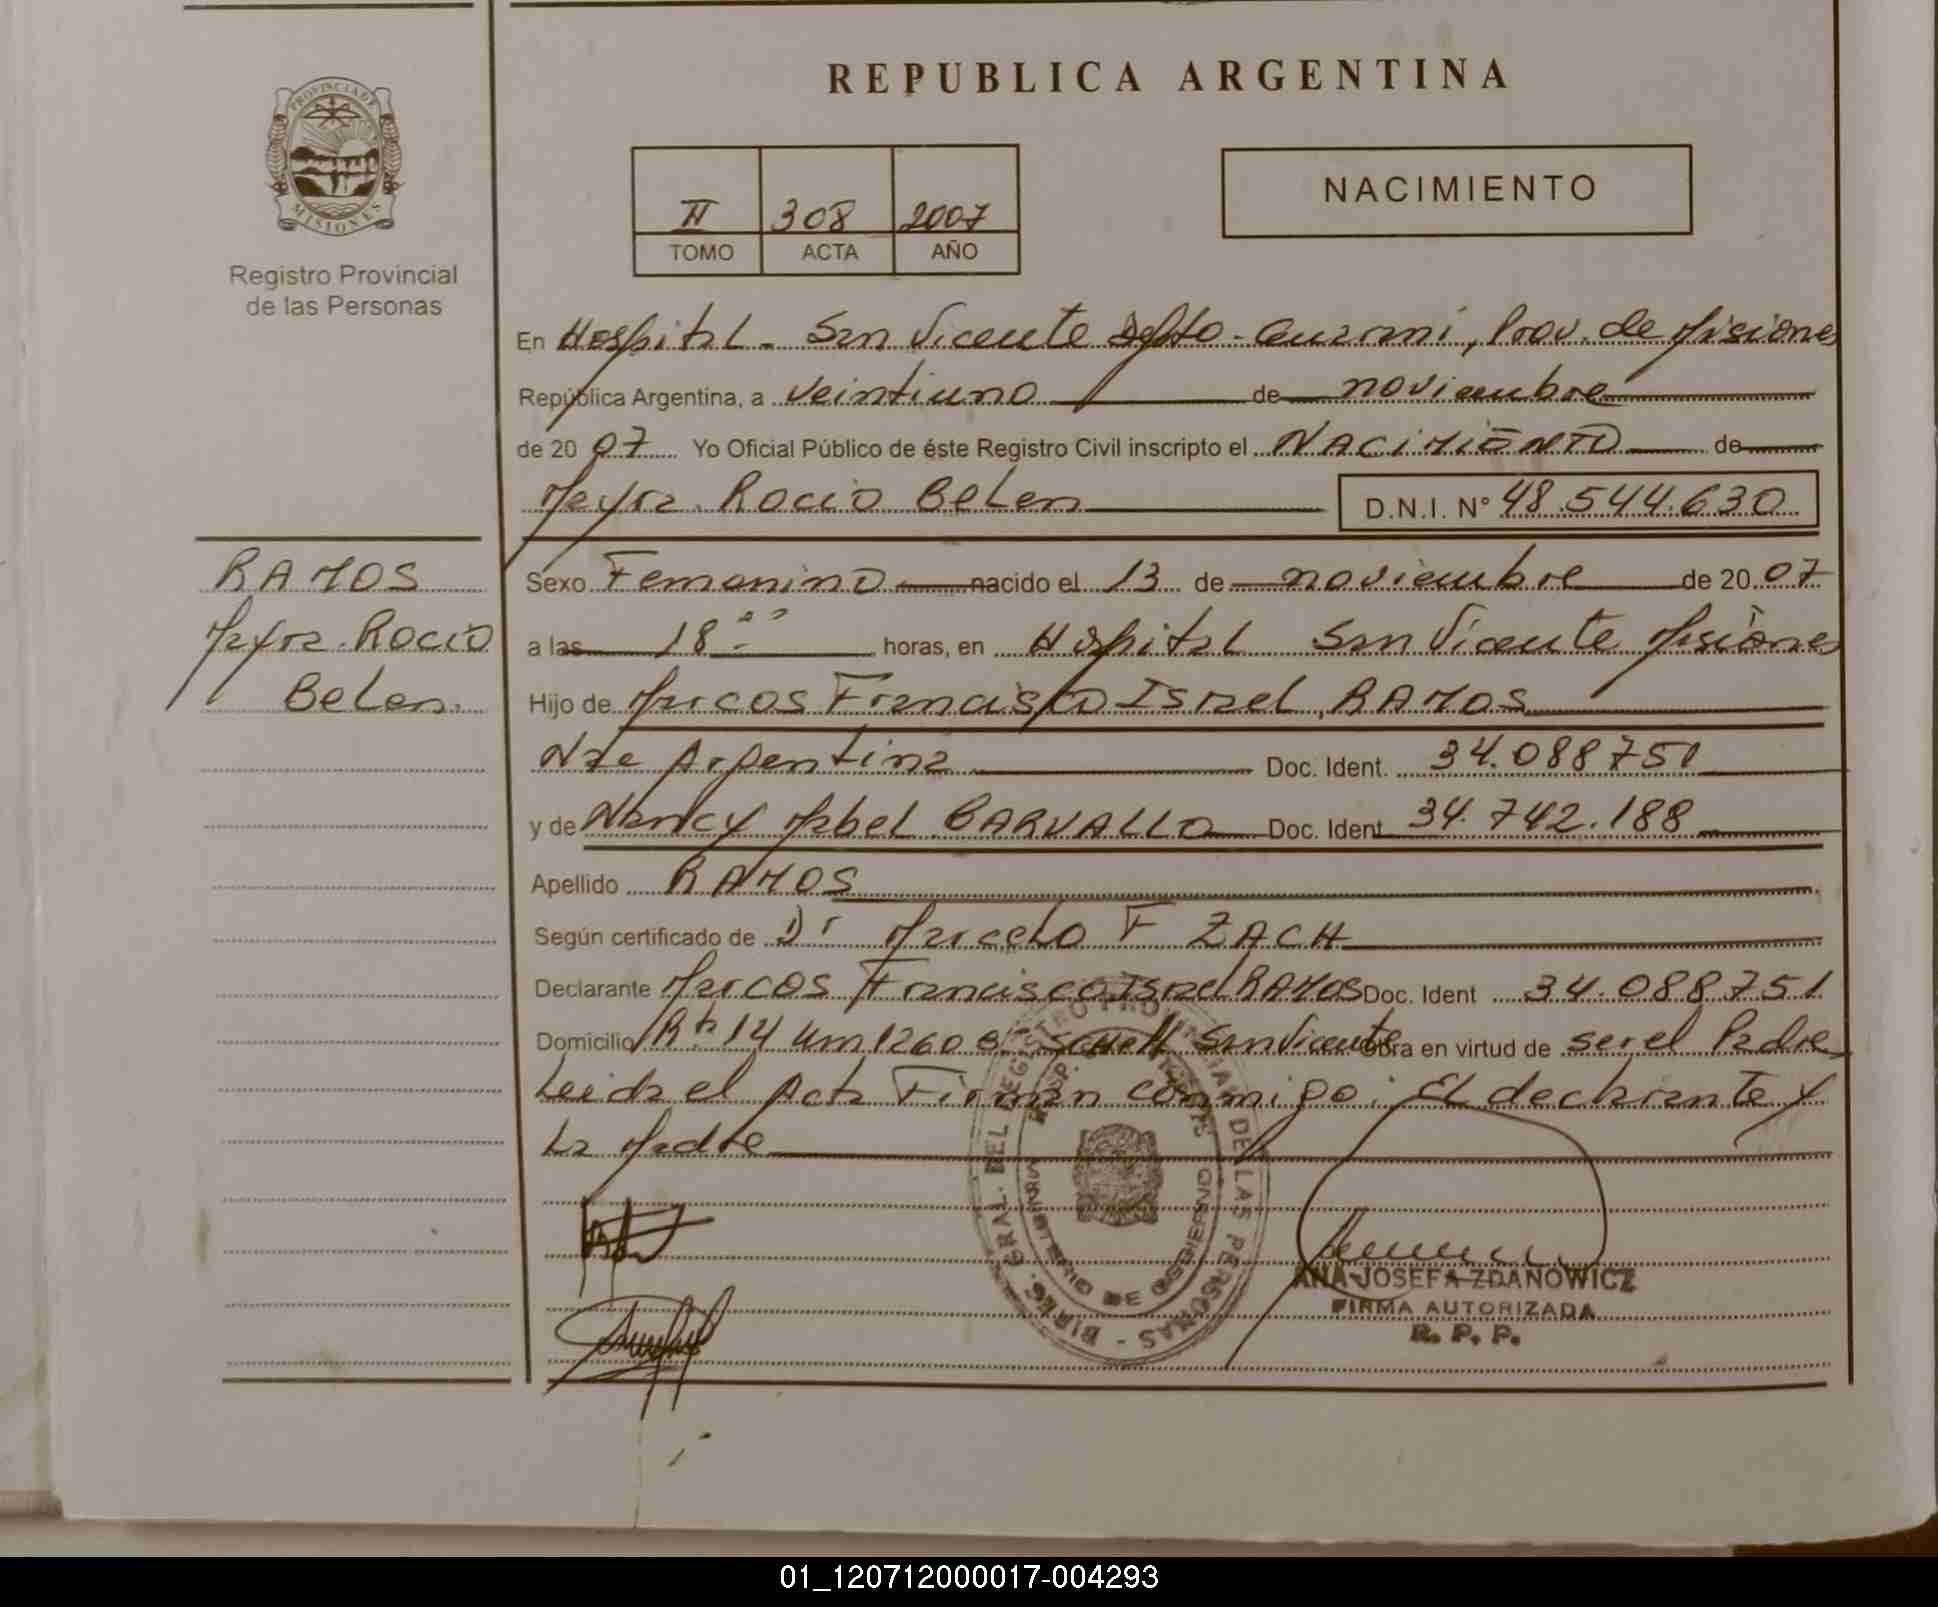 REPUBLICA ARGENTINA
PROVINCIA DE
MISIONES
Registro Provincial
de las Personas
II 308 2007
TOMO ACTA AÑO
NACIMIENTO
En Hospital - San Vicente Dpto - Guarani, Prov. de Misiones
República Argentina, a veintiuno de noviembre
de 20 07 Yo Oficial Público de éste Registro Civil inscripto el NACIMIENTO de
Rocio Belen D.N.I. N° 48.544.630
RAMOS
Rocio
Belen.
Sexo Femenino nacido el 13 de noviembre de 20 07
a las 18 horas, en Hospital San Vicente Misiones
Hijo de Marcos Francisco Israel RAMOS
Nac Argentina Doc. Ident. 34.088751
y de Nancy Mabel CARVALLO Doc. Ident 34.742.188
Apellido RAMOS
Según certificado de Dr Marcelo F ZACH
Declarante Marcos Francisco Israel RAMOS Doc. Ident 34.088.751
Domicilio 14 Km 1260 San Vicente Obra en virtud de ser el Padre
Leida el Acta Firman conmigo: El declarante y
La Madre
DIREC. GRAL. DEL REGISTRO PROVINCIAL DE LAS PERSONAS
MINISTERIO DE GOBIERNO
ANA JOSEFA ZDANOWICZ
FIRMA AUTORIZADA
R. P. P.
01_120712000017-004293